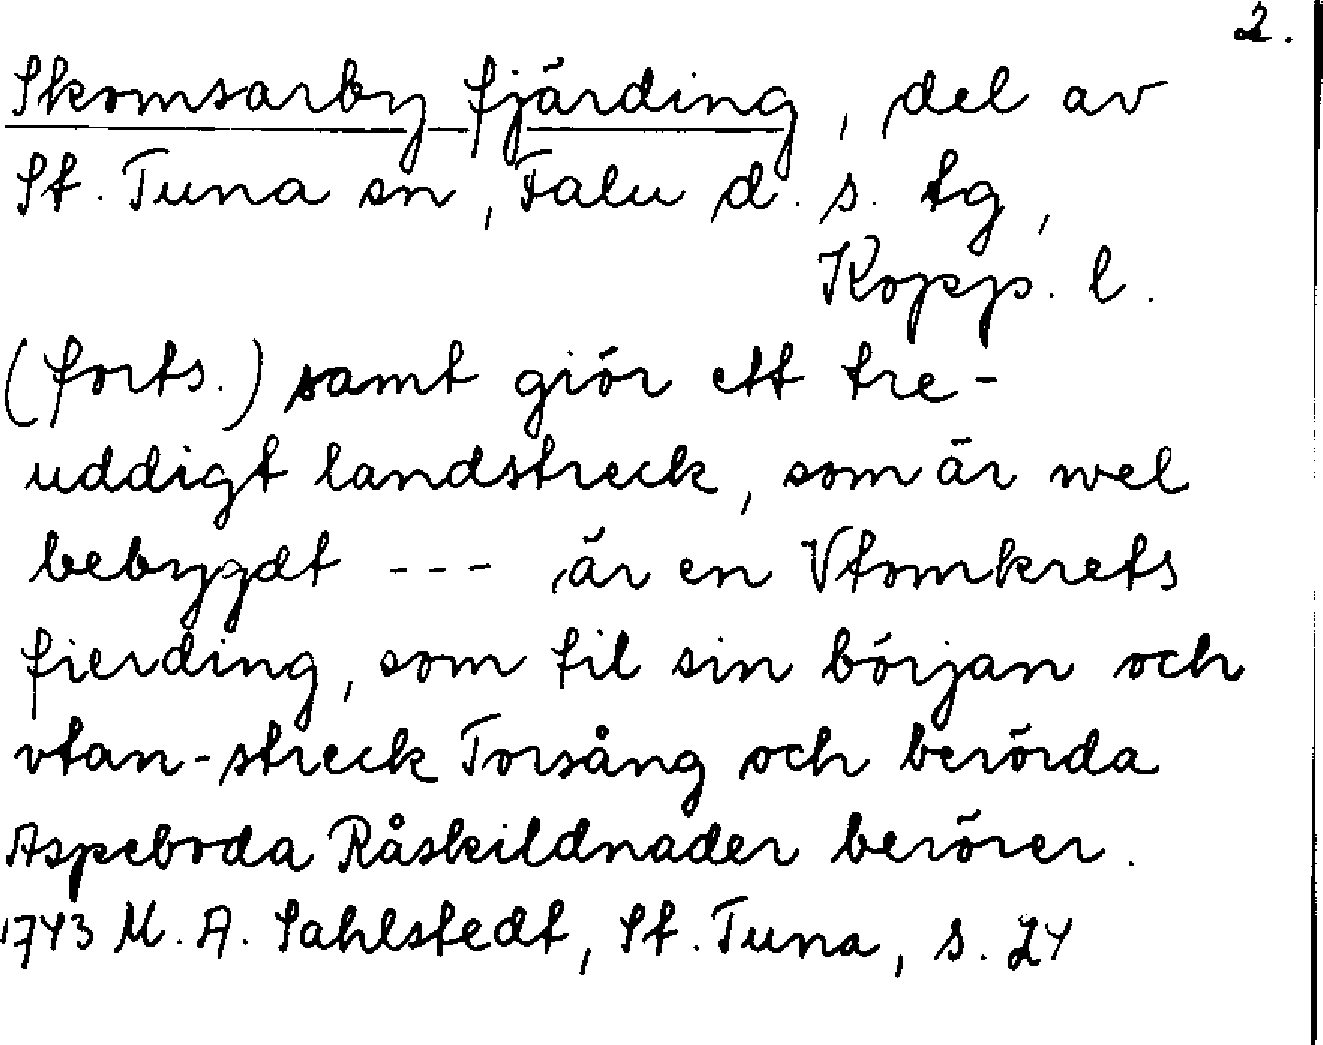 2.
Skomsarby fjärding, del av
St. Tuna sn, Falu d. s. tg,
Kopp. l.
(forts.) samt giör ett tre-
uddigt landstreck, som är wel
bebyggdt --- är en Vtomkrets
fierding, som til sin början och
vtan-streck Torsång och berörda
Aspeboda Råskildnader berörer.
1743 M. A. Sahlstedt, St. Tuna, s. 24